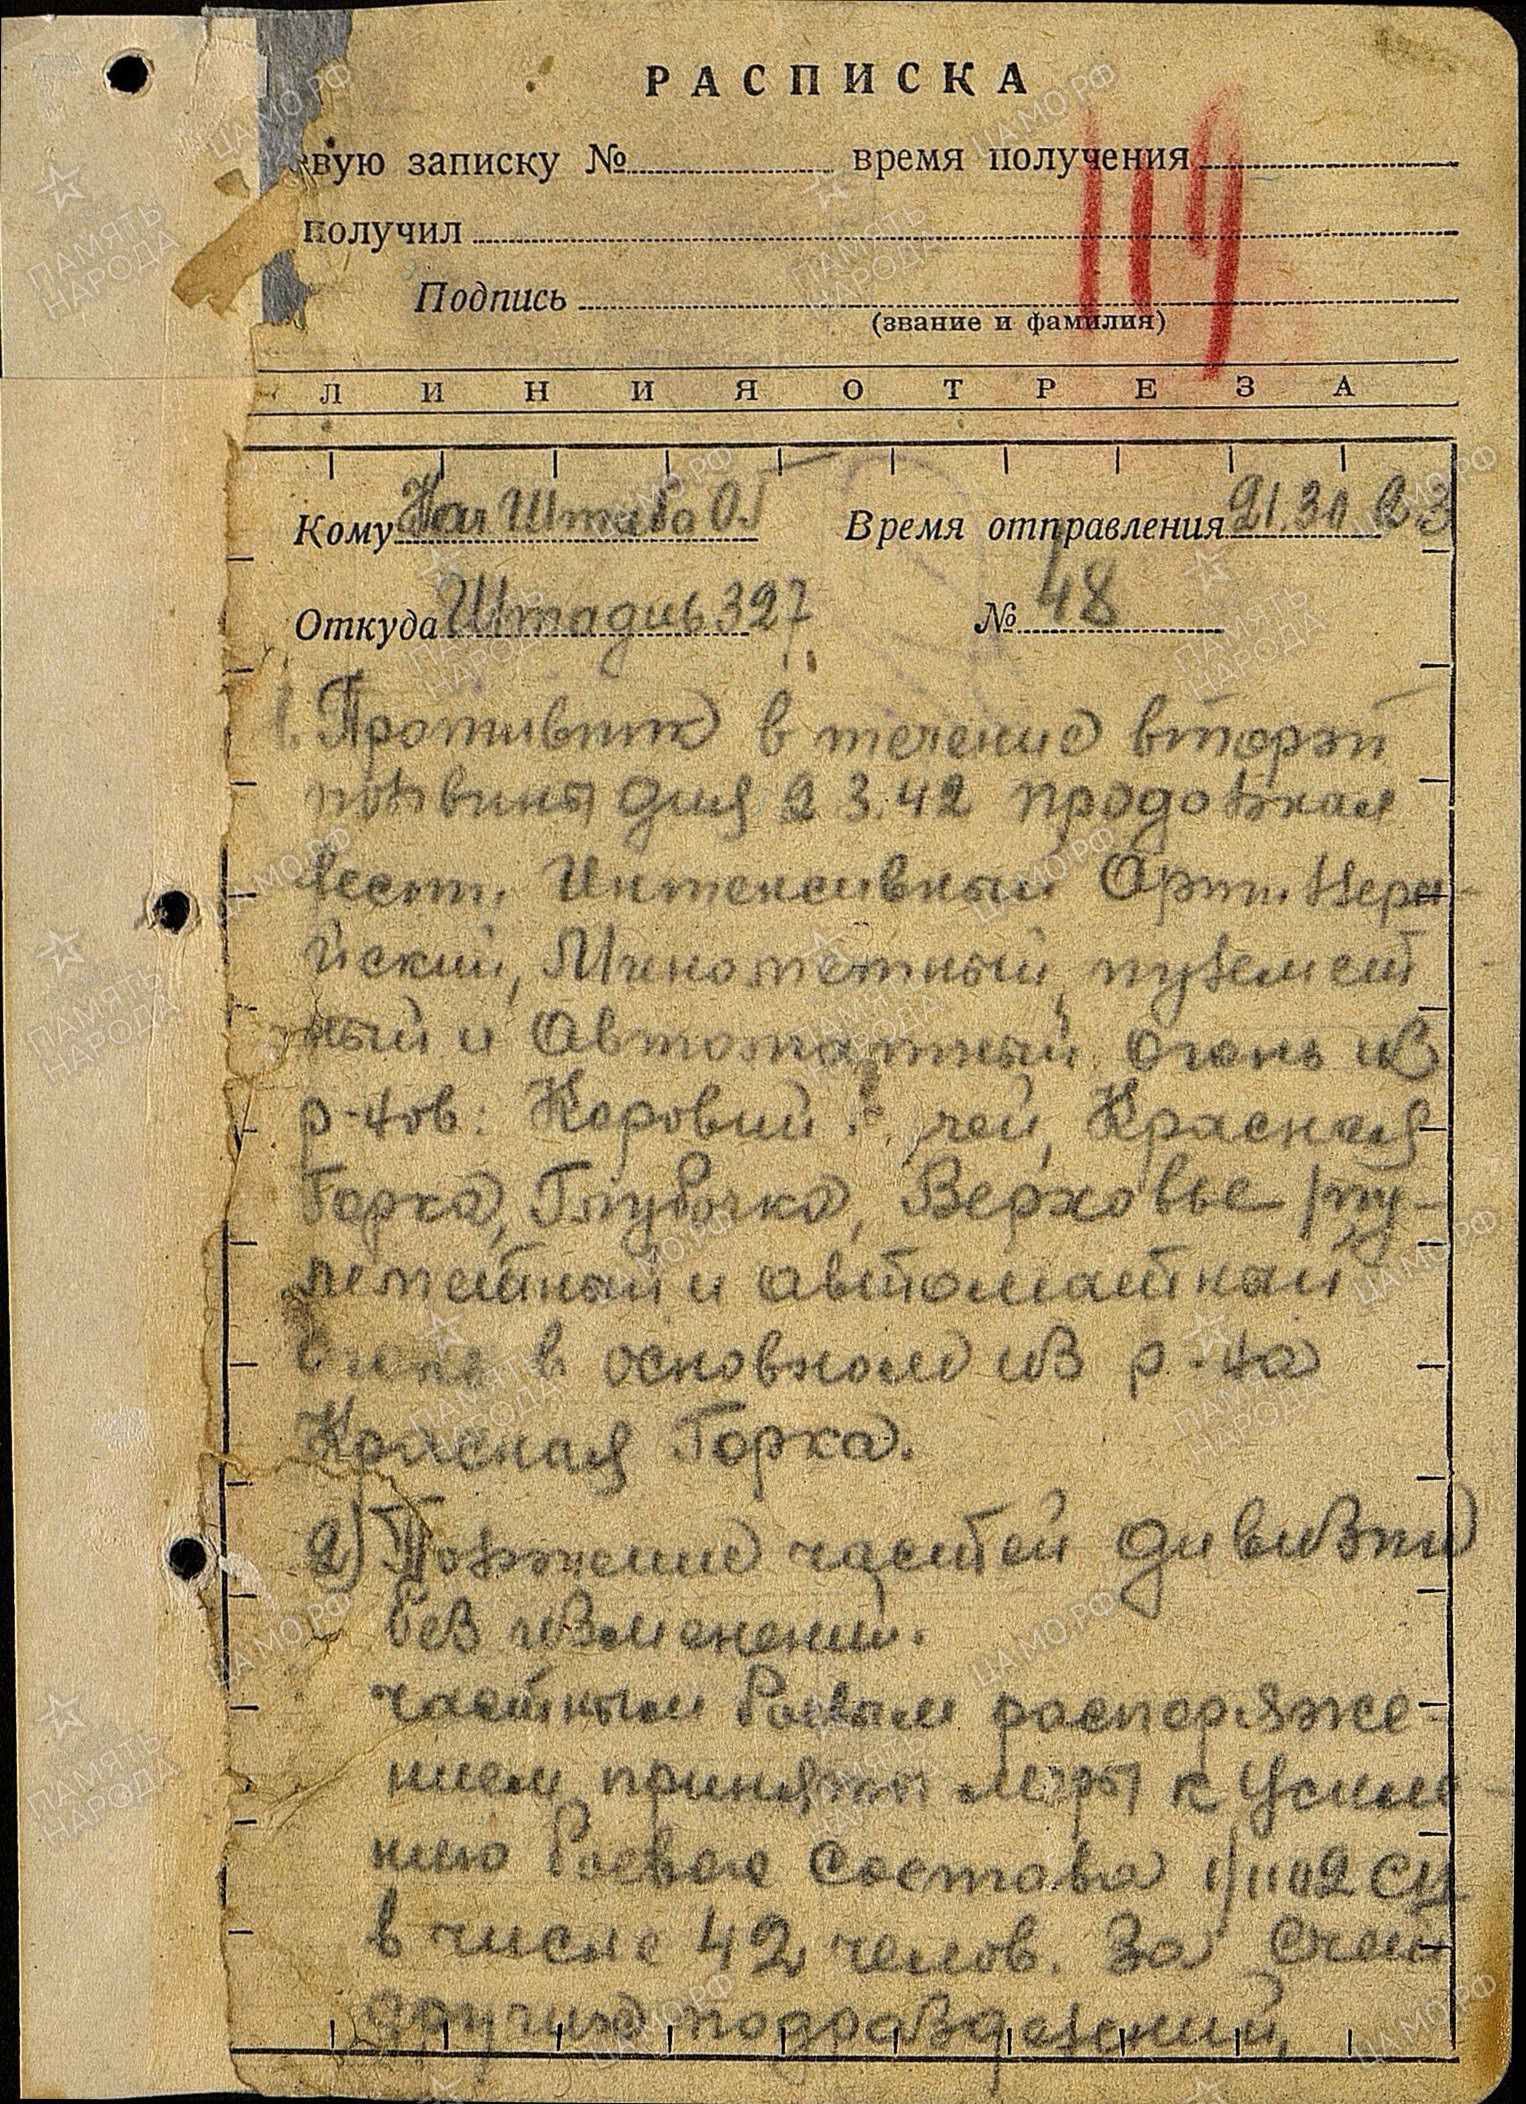 РАСПИСКА
евую записку № время получения
119
получил
Подпись
(звание и фамилия)
ЛИНИЯ ОТРЕЗА
Кому Нач Штаба ОГ Время отправления 21.30 2.3
Откуда Штадив 327 № 48
1. Противник в течение второй
половины дня 2 3.42 продолжал
вести интенсивный Артиллери-
йский, Минометный, пулемет
ный и Автоматный огонь из
р-нов: Коровий чей, Красная
Горка, Глубочка, Верховье /пу-
леметный и автоматный
огонь в основном из р-на
Красная Горка.
2) Положение частей дивизии
без изменений.
частным боевым распоряже-
нием приняты меры к усиле-
нию боевого состава 1/1102 СП
в числе 42 челов. За счет
других подразделений,
ПАМЯТЬ НАРОДА
ЦАМО.РФ